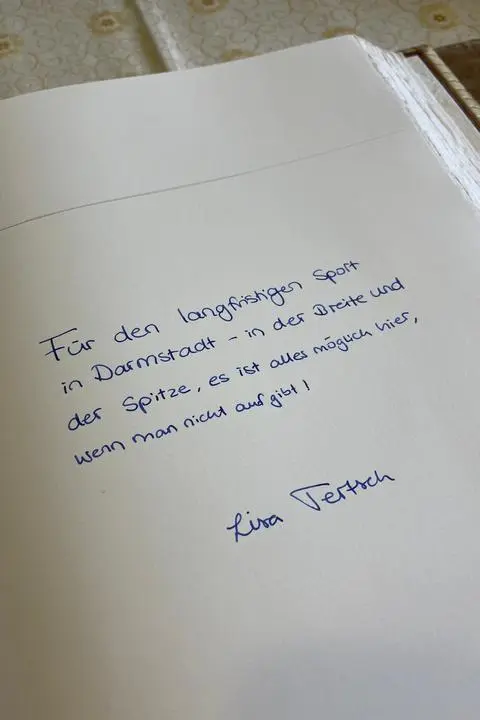 Für den langfristigen Sport
in Darmstadt - in der Breite und
der Spitze, es ist alles möglich hier,
wenn man nicht aufgibt!
Lisa Tertsch